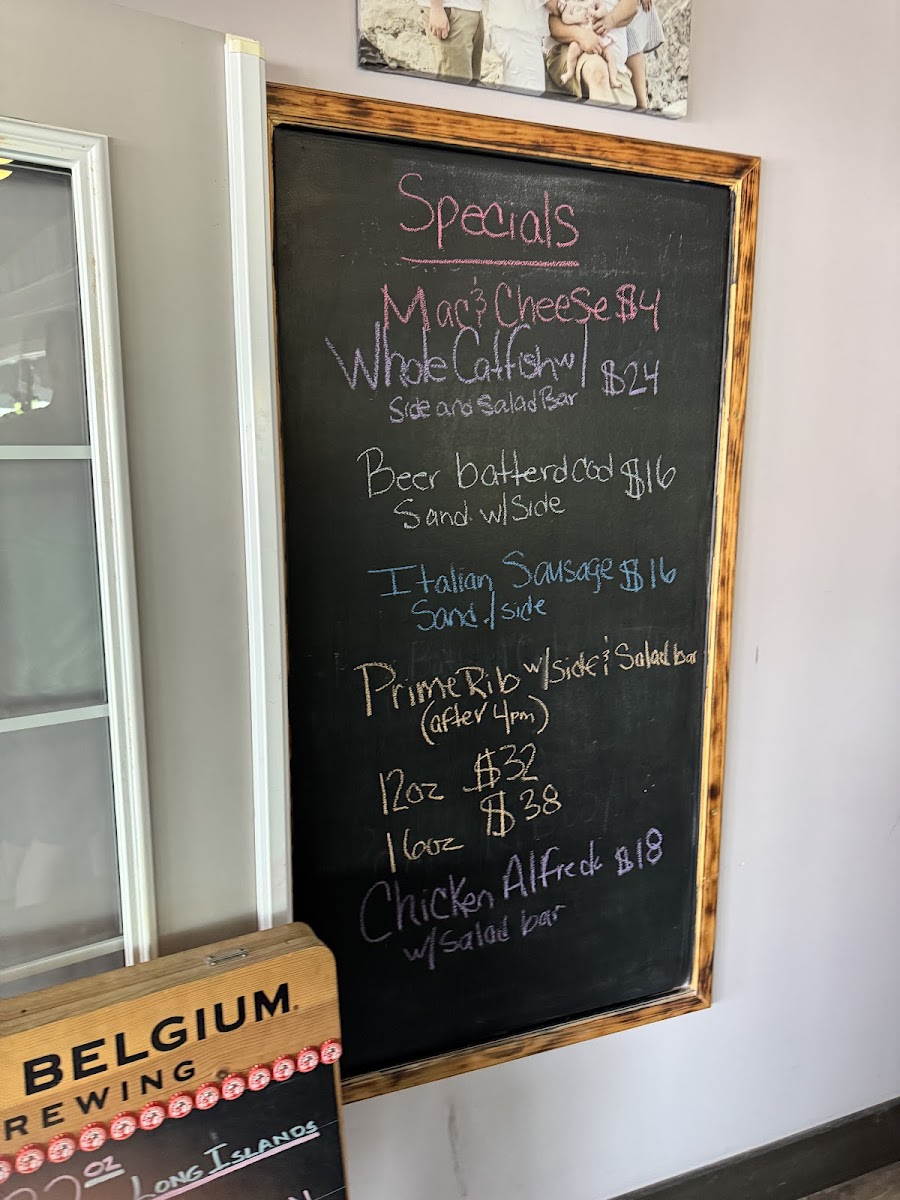 Specials
Mac & Cheese $4
Whole Catfish w/ $24
Side and Salad Bar
Beer batterd Cod $16
Sand. w/ Side
Italian Sausage $16
Sand. / side
Prime Rib w/ Side & Salad bar
(after 4pm)
12oz $32
16oz $38
Chicken Alfredo $18
w/ Salad bar
BELGIUM
REWING
oz Long Islands